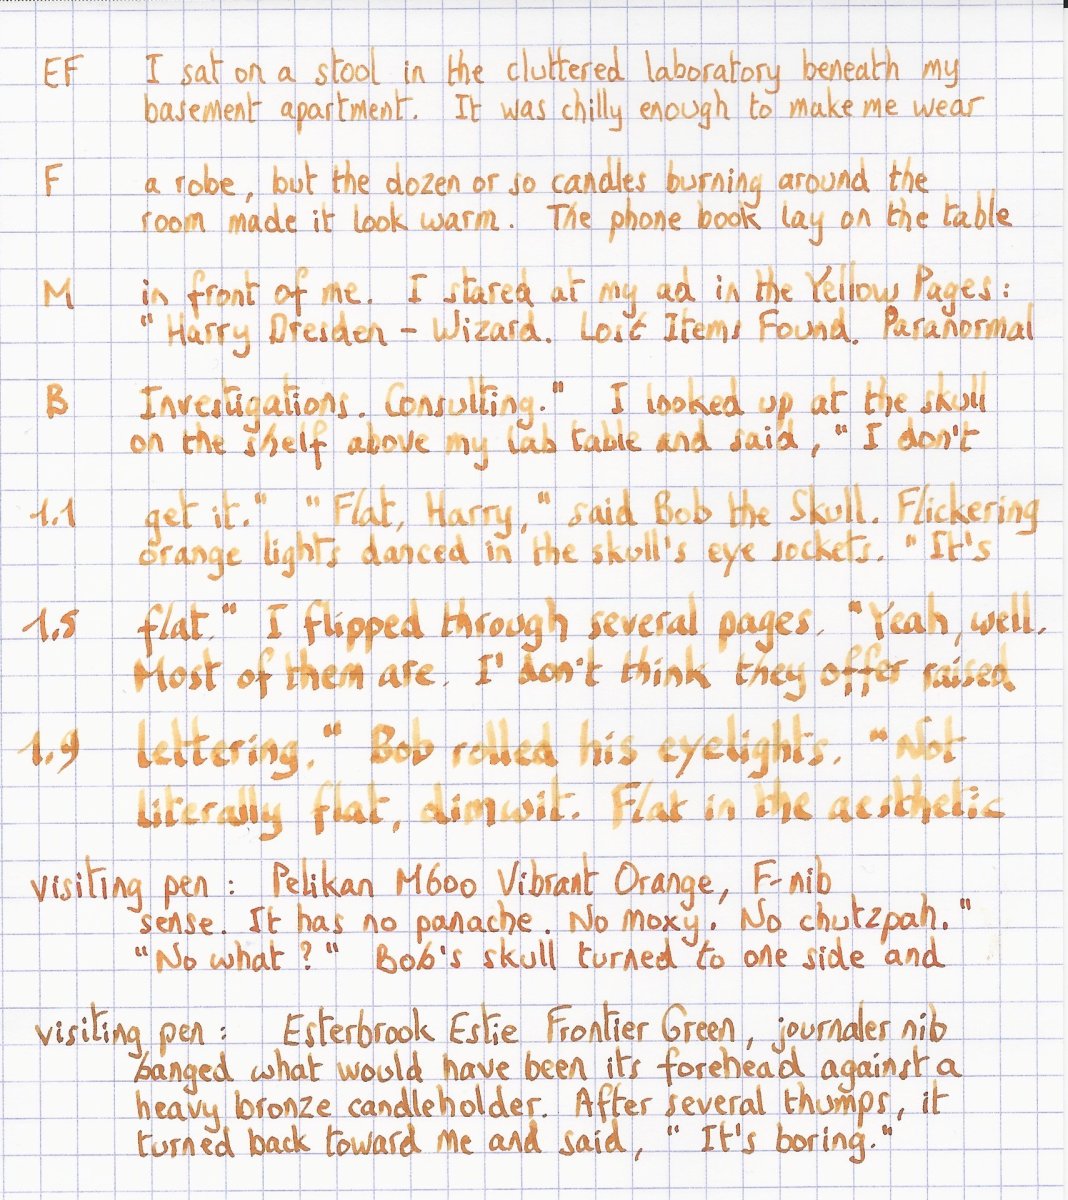 EF I sat on a stool in the cluttered laboratory beneath my
basement apartment. It was chilly enough to make me wear
F a robe, but the dozen or so candles burning around the
room made it look warm. The phone book lay on the table
M in front of me. I stared at my ad in the Yellow Pages:
"Harry Dresden - Wizard. Lost Items Found. Paranormal
B Investigations. Consulting." I looked up at the skull
on the shelf above my lab table and said, "I don't
1.1 get it." "Flat, Harry," said Bob the Skull. Flickering
orange lights danced in the skull's eye sockets. "It's
1.5 flat." I flipped through several pages. "Yeah, well.
Most of them are. I don't think they offer raised
1.9 lettering." Bob rolled his eyelights. "Not
literally flat, dimwit. Flat in the aesthetic
visiting pen: Pelikan M600 Vibrant Orange, F-nib
sense. It has no panache. No moxy. No chutzpah."
"No what?" Bob's skull turned to one side and
visiting pen: Esterbrook Estie Frontier Green, journaler nib
banged what would have been its forehead against a
heavy bronze candleholder. After several thumps, it
turned back toward me and said, "It's boring."